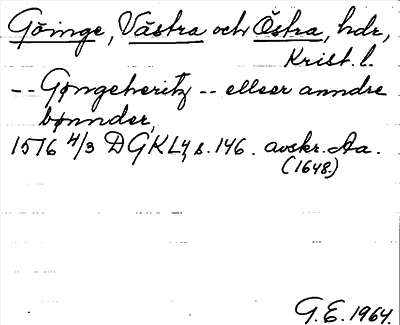 Göinge, Västra och Östra, hdr,
Krist. l.
-- Gøngeheritz -- elleer anndre
bønnder,
1576 4/3 DGKL4 s. 146. avskr. Aa.
(1648.)
G.E. 1964.